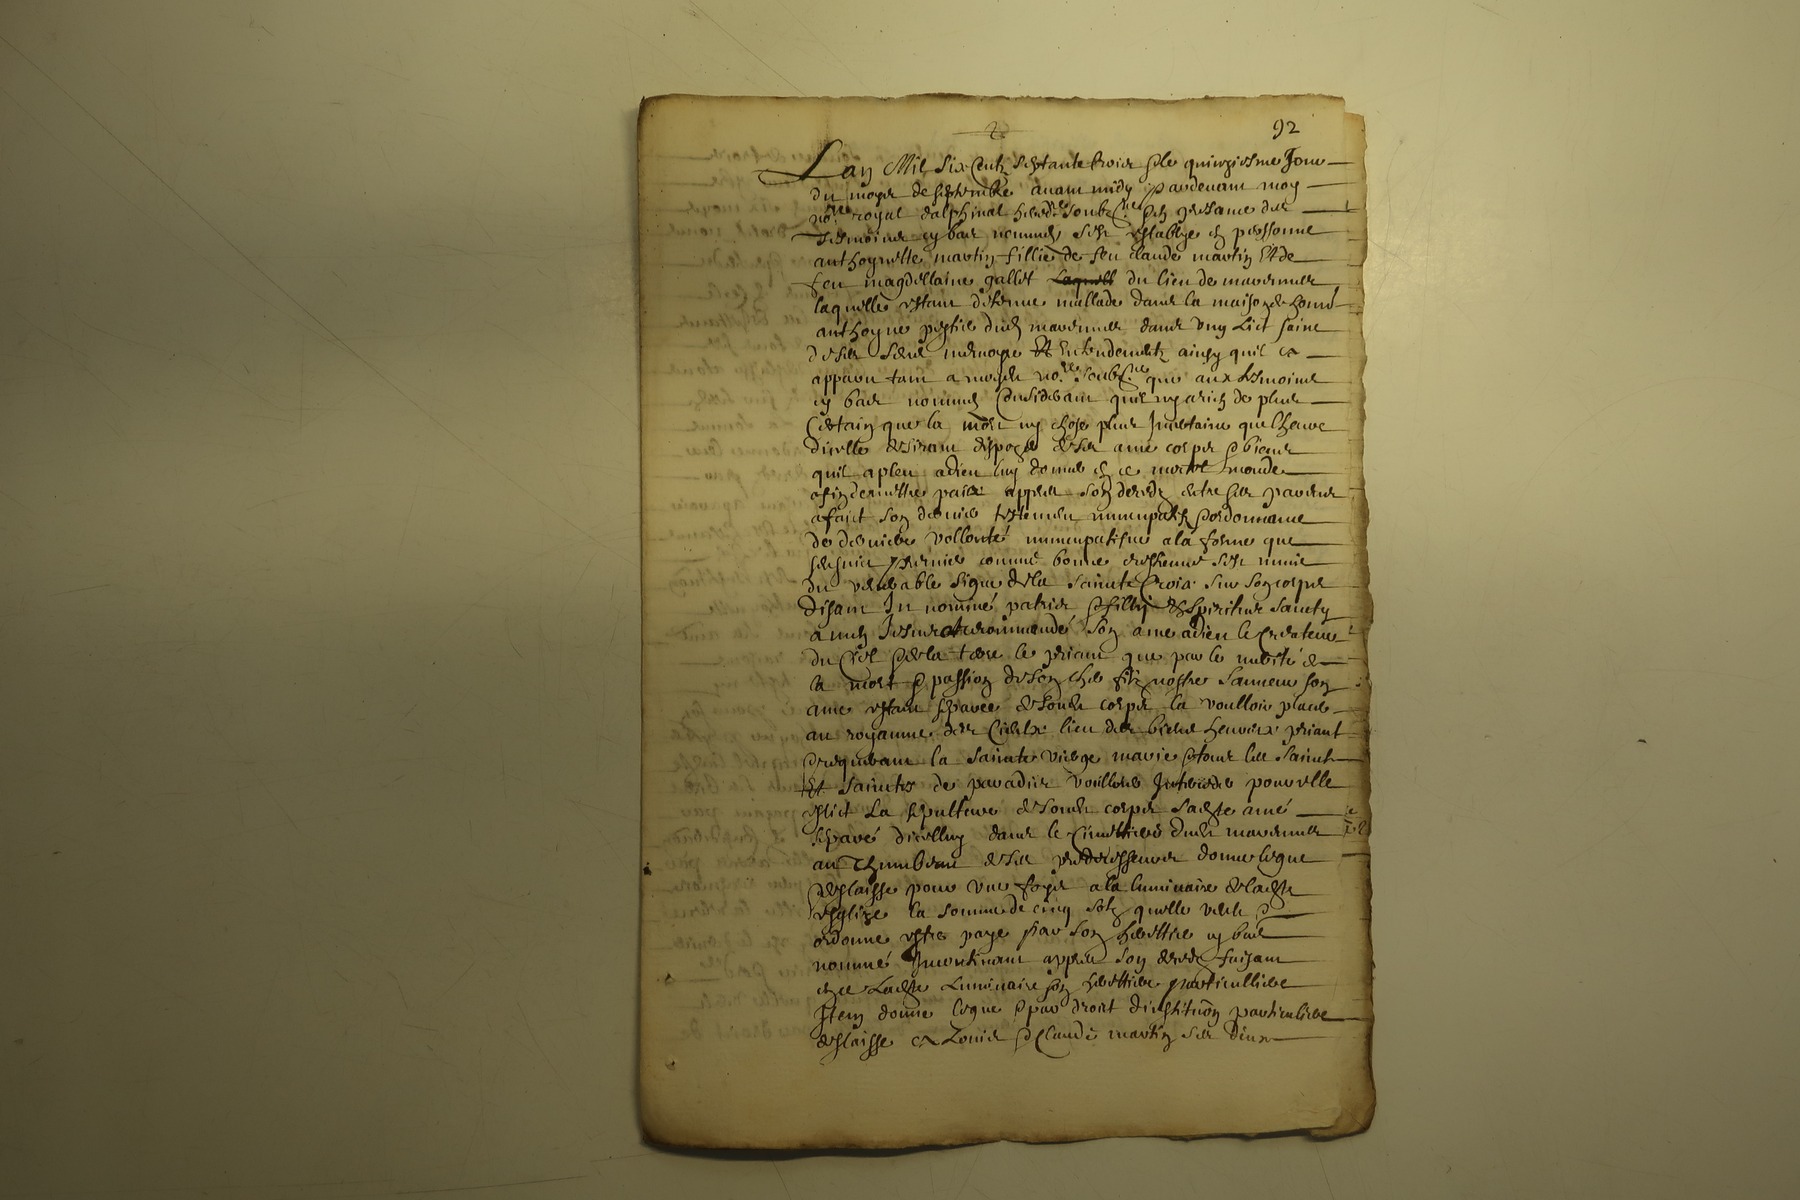 92
Lan Mil six Centz septante trois & le quinziesme Jour
du moys de septembre avant midy pardevant moy
no.re royal dalphinal hered.re soubz.né & en presance des
tesmoings cy bas nommés sest establye en personne
anthoynette martin fillie de feu claude martin Et de
feu magdellaine gallet laquelle du lieu de
laquelle estant détenue mallade dans la maison de honn.
anthoyne dud dans ung Lict saine
de ses sens memoyre Et Entendementz ainsy quil a
apparu tant a moyd no.re soubz.né que aux tesmoins
cy bas nommés Considerant quil ny a rien de plus
Certain que la mort ny chose plus Incertaine que lheure
dicelle desirant dispozer de ses ame corps & biens
quil a pleu a dieu luy donner en ce mortel monde
afin de mettre paix appres son deces entre ses parens
a faict son dernier testement nuncupatif & ordonnance
de derniere vollonté nuncupatifve a la forme que
sensuit premier comme bonne crestienne sest munie
du venerable signe de la sainte Croix sur son corps
disant In nomine patris & fillij & Spiritus Sancty
amen recommandé son ame a dieu le Createur
du Ciel & de la terre le priant que par le merite de
la mort & passion de son cher filz nostre sauveur son
ame estant separée de sond corps la voulloir placer
au royaume des Cieulx lieu des bien heureux priant
& requerant la Sainte vierge marie & tous les Saints
Et Saintes de paradis voulloir Interceder pour elle
eslict La sepulture de sond corps sadte ame
separé dicelluy dans le Cimettiere dud
au Thumbeau de ses predecesseurs donne legue
& deslaisse pour une foys a la luminaire de ladte
esglize la somme de cinq solz quelle veult &
ordonne estre payé par son heretier cy bas
nommé Incontinant appres son deces faisant
Ladte Luminaire son heretiere particulliere
Item donne legue & par droit dinstitution particuliere
deslaisse a Louis & Claude martin ses deux